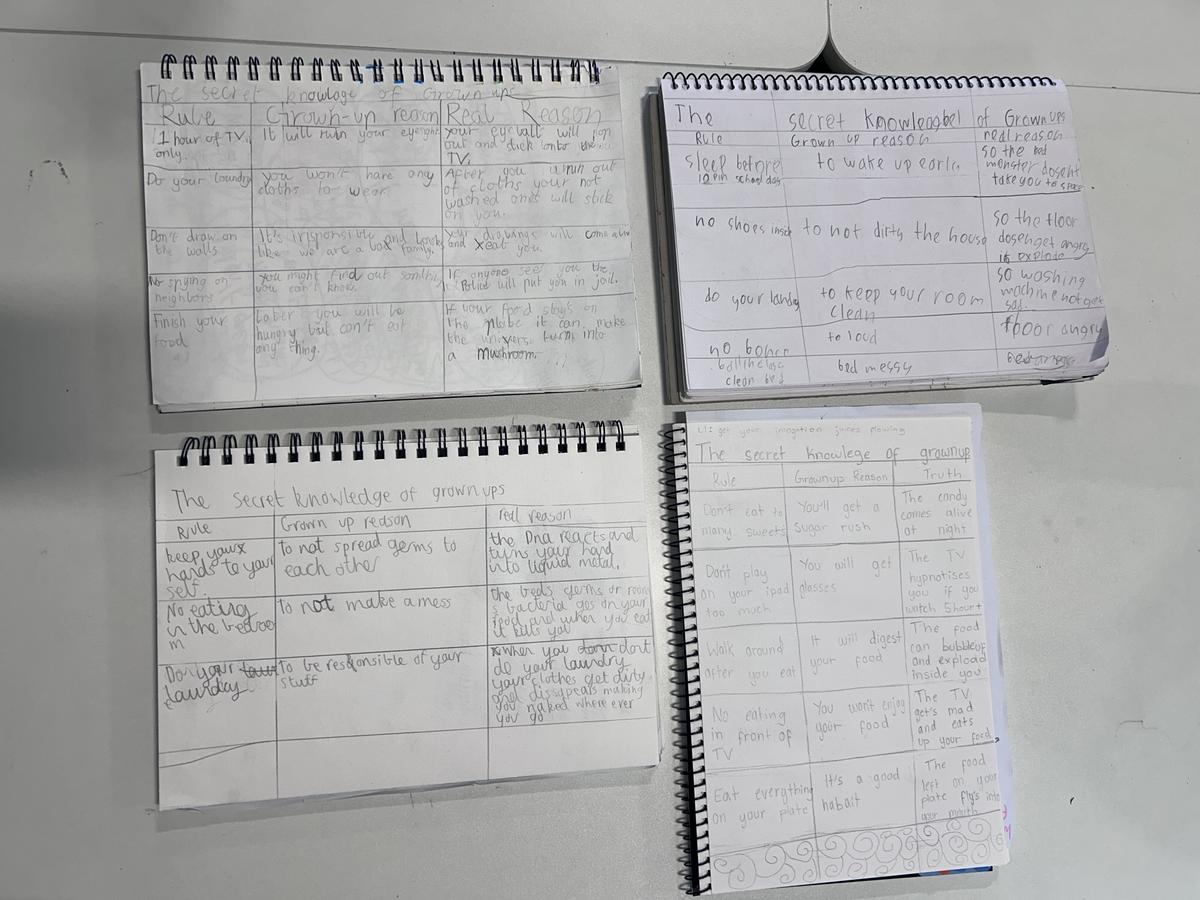 The secret knowloge of Grown ups
Rule Grown-up reason Real Reason
1 hour of TV only. It will ruin your eyesight your eyeball will jon out and stick onto the TV.
Do your laundry you won't have any cloths to wear. After you run out of cloths your not washed ones will stick on you.
Don't draw on the walls It's irisponsible and looks like we are a bad family. your drawings will come alive and eat you.
No spying on neighbors you might find out somthing you can't know. If anyone see's you the Police will put you in jail.
Finish your food Later you will be hungry but can't eat any thing. If your food stays on the plate it can make the univers turn into a mushroom.
The secret Knowleagbel of Grownups
Rule Grown up reason real reason
sleep before 12 pm school day to wake up early. so the bed monster dosent take you to space
no shoes inside to not dirty the house so the floor dosenget angry is explode
do your landry to keep your room clean so washing machine not get sad.
no bonce ball to loud floor angry
clean bed bed messy
The secret knowledge of grown ups
Rule Grown up reason real reason
keep yours hands to your self. to not spread germs to each other the Dna reacts and turns your hand into liquid metal.
No eating in the bedroo m To not make a mess the beds germs or room s bacteria gos on your food and when you eat it kills you
Do your laundry To be responsible of your stuff when you dont do your laundry your clothes get dirty and dissypears making you naked where ever you go
LI: get your imagation juices flowing
The secret knowlege of grownup
Rule Grownup Reason Truth
Don't eat to many sweets You'll get a sugar rush The candy comes alive at night
Don't play on your ipad too much You will get glasses The TV hypnotises you if you watch 5hour+
Walk around after you eat It will digest your food The food can bubble up and expload inside you
No eating in front of TV You won't enjoy your food The TV get's mad and eats up your food
Eat everything on your plate It's a good habait The food left on your plate fly's into your mouth